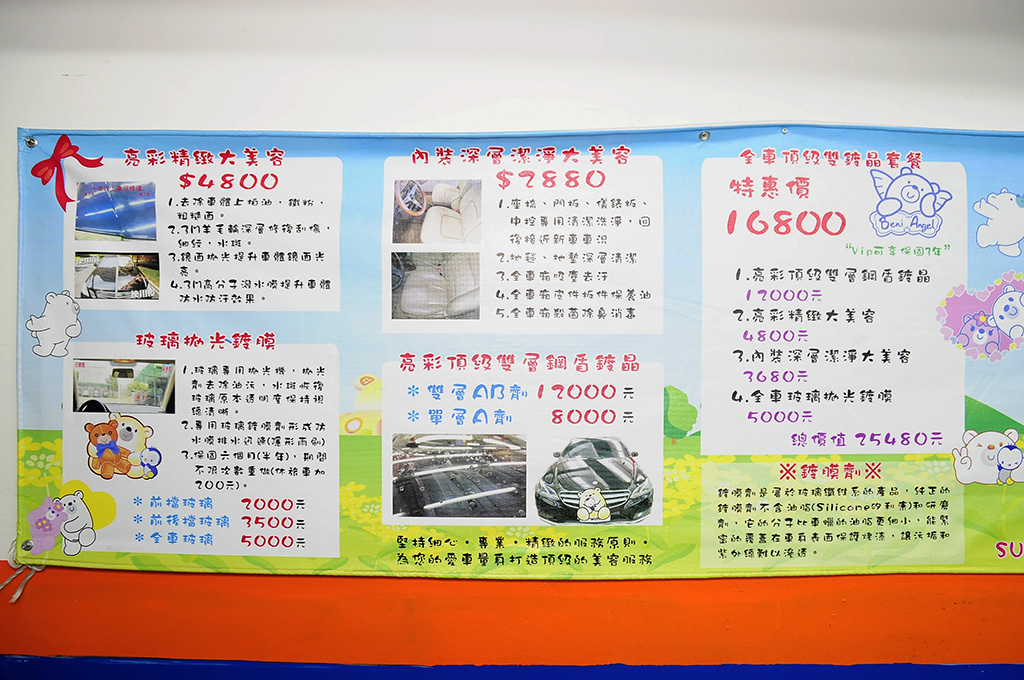 亮彩精緻大美容
$4800
1.去除車體上柏油，鐵粉，
粗糙面。
2.3M羊毛輪深層修復刮傷，
細紋，水斑。
3.鏡面拋光提升車體鏡面光
亮。
4.3M高分子潑水膜提升車體
防水防汙效果。
玻璃拋光鍍膜
1.玻璃專用拋光機，拋光
劑去除油污，水斑恢復
玻璃原本透明度保持視
線清晰。
2.專用玻璃鍍膜劑形成防
水膜排水迅速(隱形雨刷)
3.保固六個月(半年)，期間
不限次數重做(休旅車加
200元)。
＊前檔玻璃 2000元
＊前後檔玻璃 3500元
＊全車玻璃 5000元
內裝深層潔淨大美容
$2880
1.座椅、門板、儀錶板、
中控專用清潔洗淨，回
復接近新車車況
2.地毯、地墊深層清潔
3.全車廂吸塵去汙
4.全車廂皮件板件保養油
5.全車廂殺菌除臭消毒
亮彩頂級雙層鋼盾鍍晶
＊雙層AB劑 12000元
＊單層A劑 8000元
堅持細心。專業。精緻的服務原則。
為您的愛車量身打造頂級的美容服務
全車頂級雙鍍晶套餐
特惠價
16800
Deni Angel
"Vip可享保固3年"
1.亮彩頂級雙層鋼盾鍍晶
12000元
2.亮彩精緻大美容
4800元
3.內裝深層潔淨大美容
3680元
4.全車玻璃拋光鍍膜
5000元
總價值 25480元
※鍍膜劑※
鍍膜劑是屬於玻璃纖維系的產品，純正的
鍍膜劑不含油脂(Silicone矽利康)和研磨
劑，它的分子比車蠟的油脂更細小，能緊
密的覆蓋在車身表面保護烤漆，讓污垢和
紫外線難以滲透。
SU